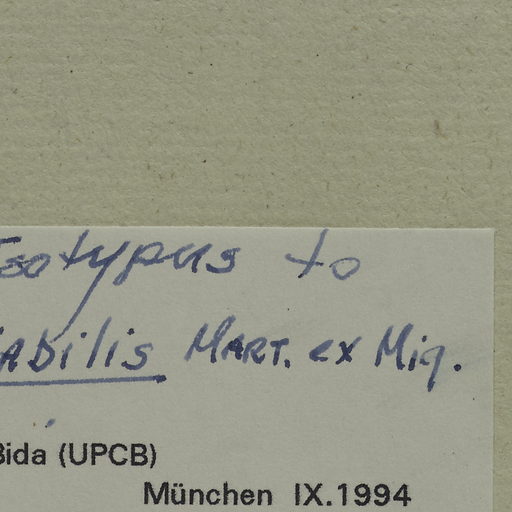 Isotypus to
iabilis MART. ex Miq.
Bida (UPCB)
München IX.1994